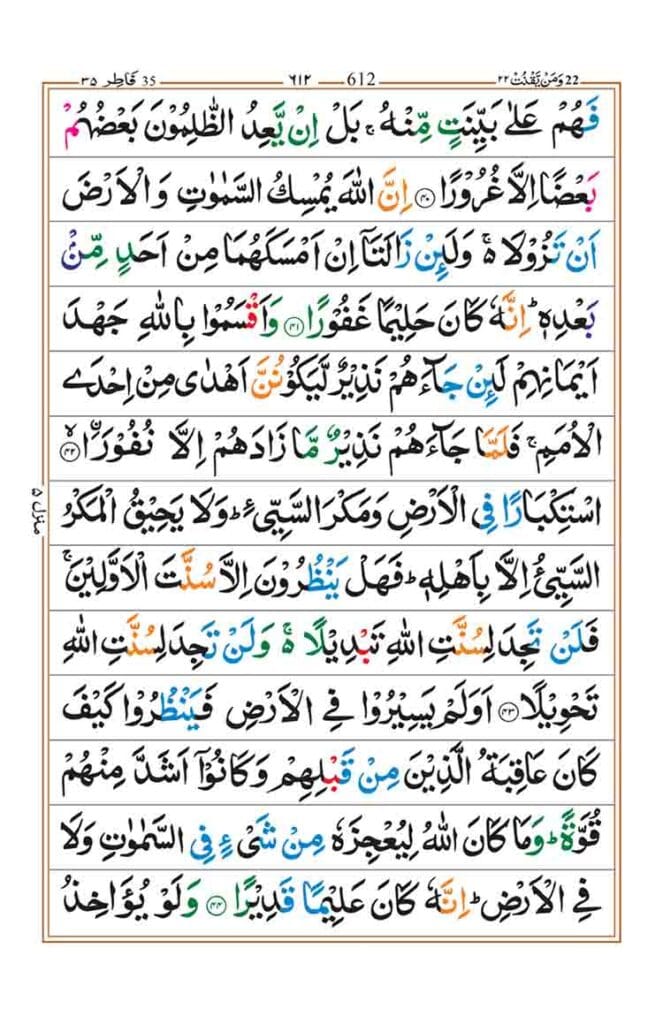 22 وَمَنْ يَّقْنُتْ ٢٢ 612 ٦١٢ 35 فَاطِر ٣٥
فَهُمْ عَلٰى بَيِّنَتٍ مِّنْهُ ۚ بَلْ اِنْ يَّعِدُ الظّٰلِمُوْنَ بَعْضُهُمْ
بَعْضًا اِلَّا غُرُوْرًا ﴿۴۰﴾ اِنَّ اللّٰهَ يُمْسِكُ السَّمٰوٰتِ وَ الْاَرْضَ
اَنْ تَزُوْلَا ۬ۚ وَلَئِنْ زَالَتَاۤ اِنْ اَمْسَكَهُمَا مِنْ اَحَدٍ مِّنْۢ
بَعْدِهٖ ؕ اِنَّهٗ كَانَ حَلِيْمًا غَفُوْرًا ﴿۴۱﴾ وَاَقْسَمُوْا بِاللّٰهِ جَهْدَ
اَيْمَانِهِمْ لَئِنْ جَآءَهُمْ نَذِيْرٌ لَّيَكُوْنُنَّ اَهْدٰى مِنْ اِحْدَى
الْاُمَمِ ۚ فَلَمَّا جَآءَهُمْ نَذِيْرٌ مَّا زَادَهُمْ اِلَّا نُفُوْرًا ۙ﴿۴۲﴾
اسْتِكْبَارًا فِى الْاَرْضِ وَمَكْرَ السَّيِّئِ ؕ وَلَا يَحِيْقُ الْمَكْرُ
السَّيِّئُ اِلَّا بِاَهْلِهٖ ؕ فَهَلْ يَنْظُرُوْنَ اِلَّا سُنَّتَ الْاَوَّلِيْنَ ۚ
فَلَنْ تَجِدَ لِسُنَّتِ اللّٰهِ تَبْدِيْلًا ۬ۚ وَلَنْ تَجِدَ لِسُنَّتِ اللّٰهِ
تَحْوِيْلًا ﴿۴۳﴾ اَوَلَمْ يَسِيْرُوْا فِى الْاَرْضِ فَيَنْظُرُوْا كَيْفَ
كَانَ عَاقِبَةُ الَّذِيْنَ مِنْ قَبْلِهِمْ وَكَانُوْۤا اَشَدَّ مِنْهُمْ
قُوَّةً ؕ وَمَا كَانَ اللّٰهُ لِيُعْجِزَهٗ مِنْ شَىْءٍ فِى السَّمٰوٰتِ وَلَا
فِى الْاَرْضِ ؕ اِنَّهٗ كَانَ عَلِيْمًا قَدِيْرًا ﴿۴۴﴾ وَلَوْ يُؤَاخِذُ
منزل ۵